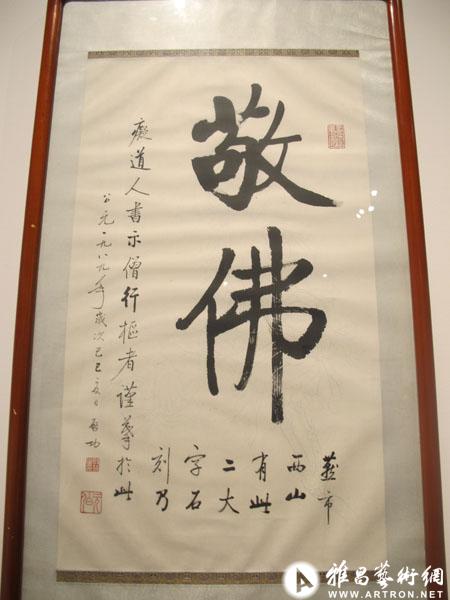 敬佛
燕市
西山
有此
二大
字石
刻乃
癡道人書示僧行樞者謹摹於此
公元一九八九年歲次己巳夏日啓功
雅昌藝術網
WWW.ARTRON.NET